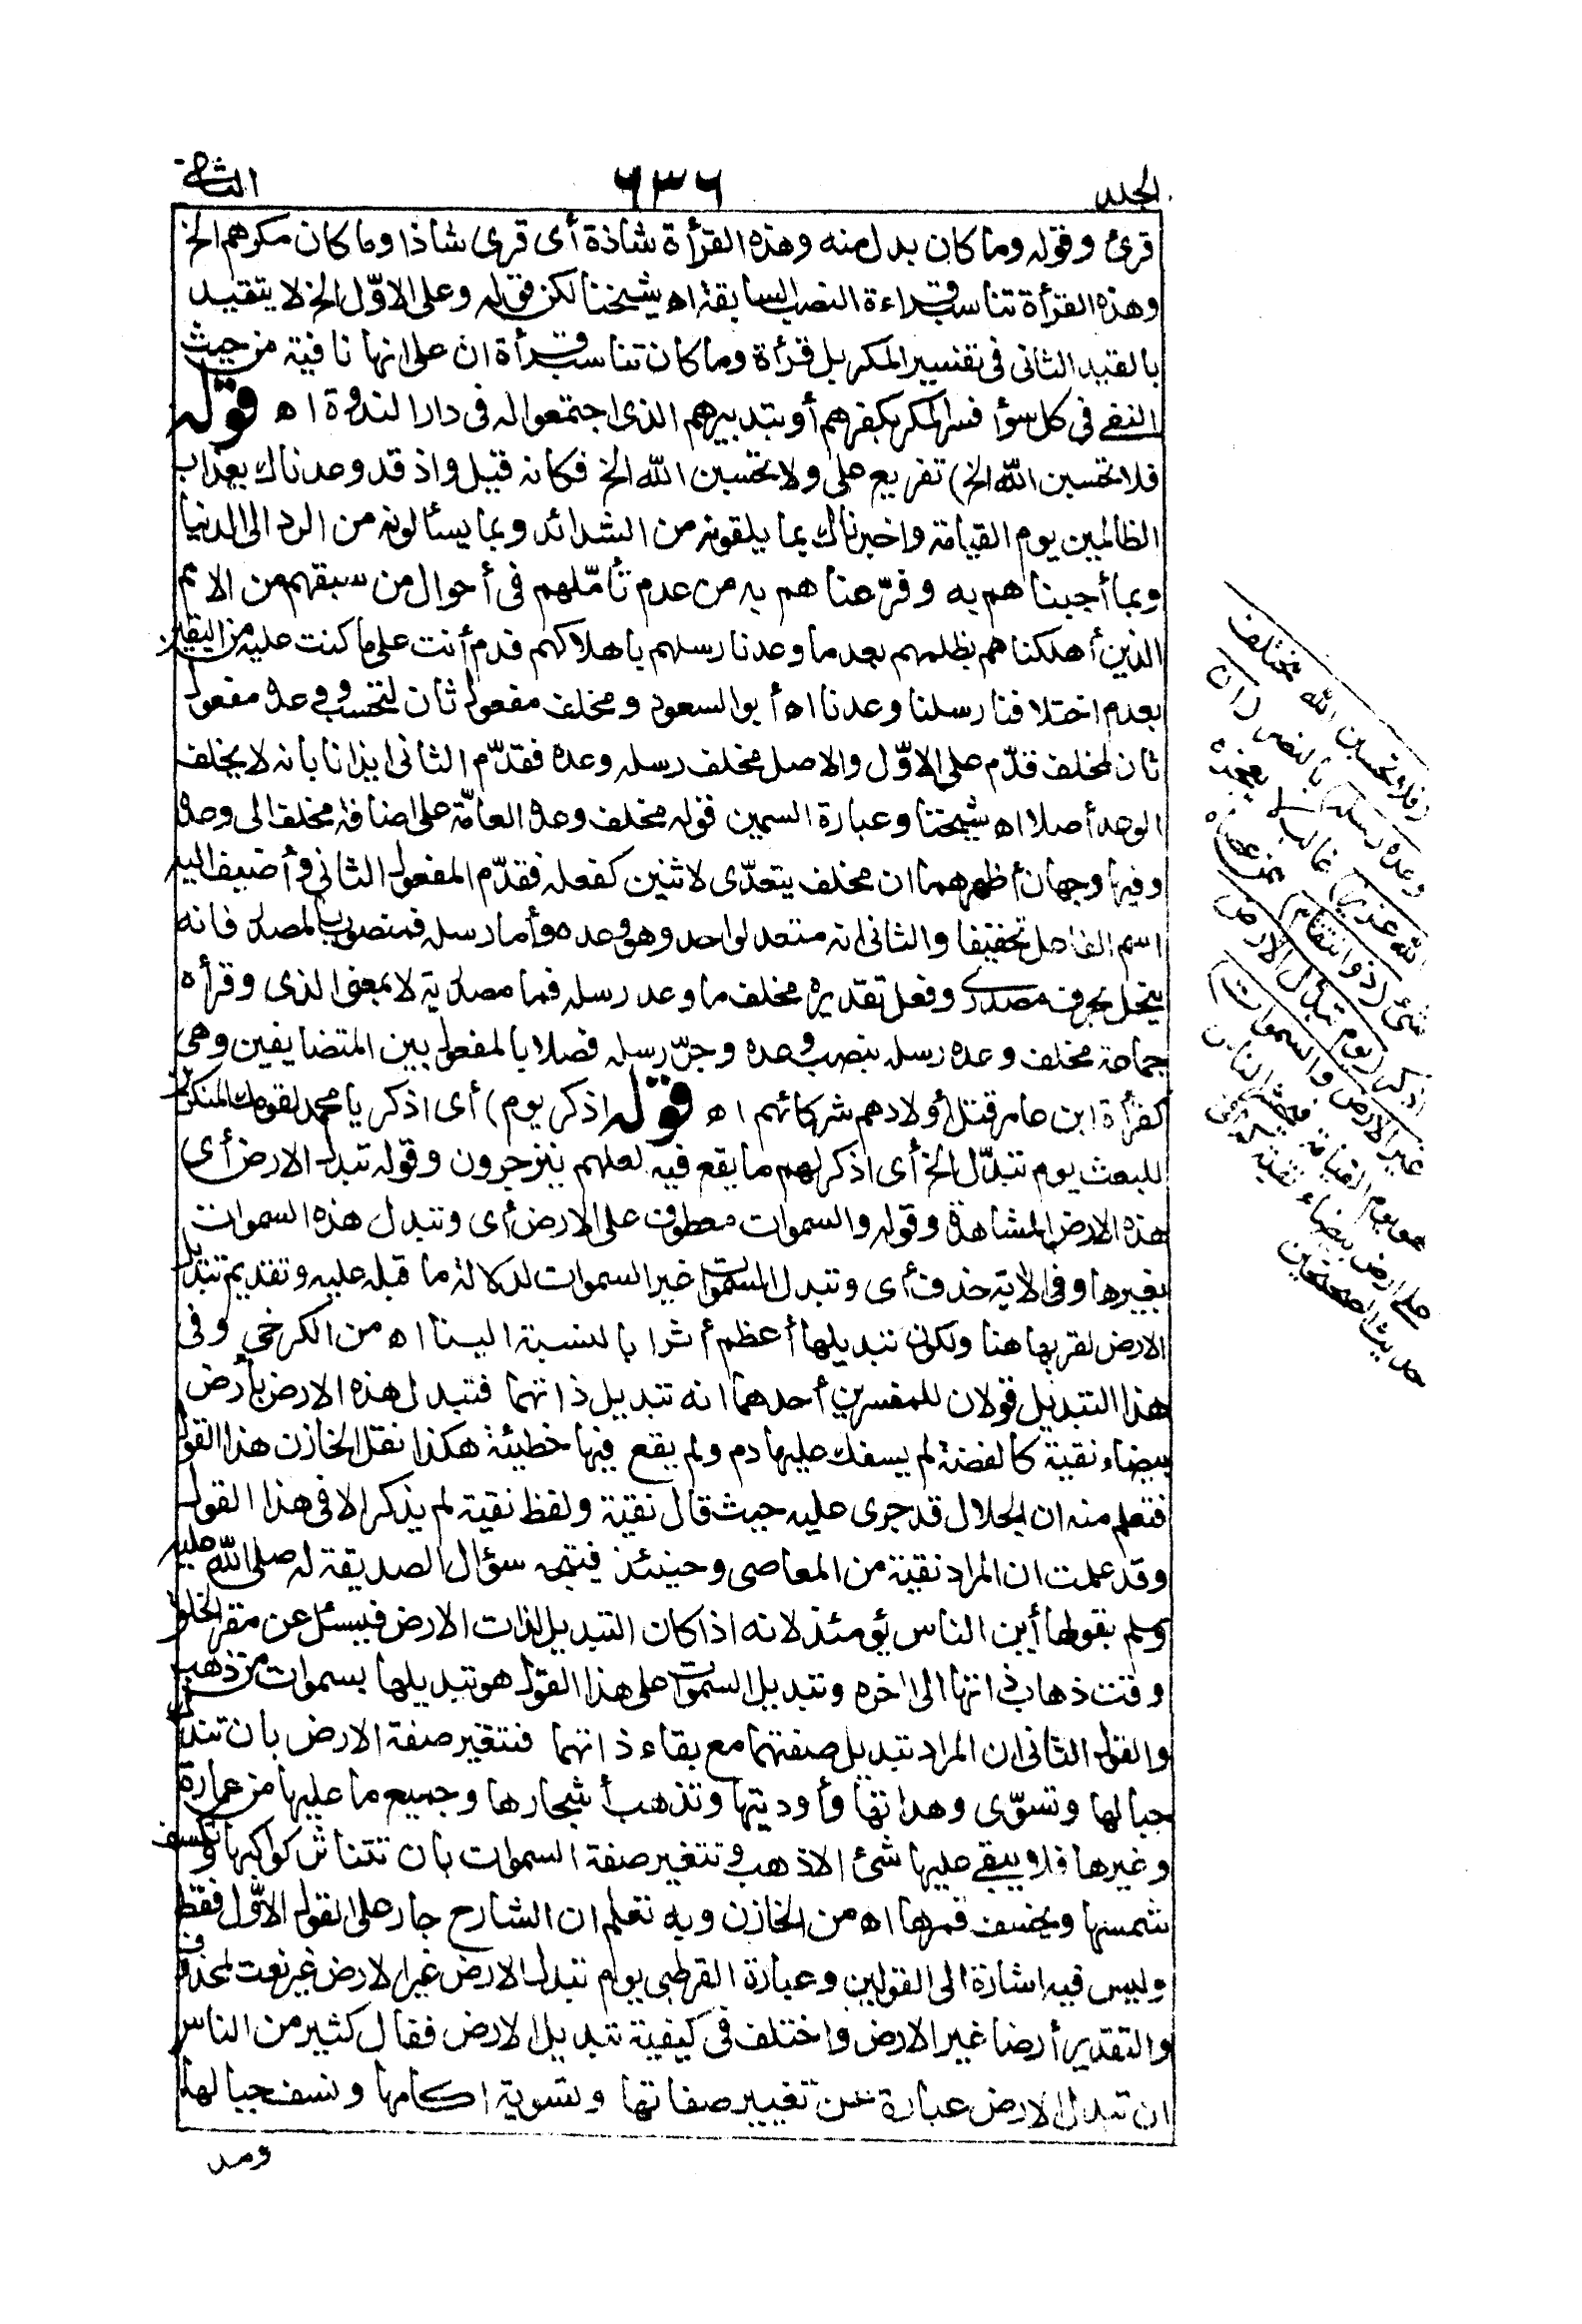 الجلد
٦٣٦
الثانى
قرئ وقوله وما كان بدل منه وهذه القرأة شاذة أى قرى شاذا وما كان مكرهم الخ
وهذه القرأة تناسب قراءة النصب السابقة اه شيخنا لكن قوله وعلى الاوّل الخ لا يتقيد
بالقيد الثانى فى تفسير المكر بل قرأة وما كان تناسب قرأة ان على انها نافية من حيث
النفى فى كل سوأ فسر المكر بكفرهم أو بتدبيرهم الذى اجتمعوا له فى دار الندوة اه قوله
فلا تحسبن الله الخ) تفريع على ولا تحسبن الله الخ فكانه قيل واذ قد وعدناك بعذاب
الظالمين يوم القيامة واخبرناك بما يلقونه من الشدائد وبما يسألونه من الرد الى الدنيا
وبما أجبناهم به وفرّعناهم به من عدم تأمّلهم فى أحوال من سبقهم من الامم
الذين أهلكناهم بظلمهم بعد ما وعدنا رسلهم باهلاكهم فدم أنت على ما كنت عليه من اليقين
بعدم اختلافنا رسلنا وعدنا اه أبو السعود ومخلف مفعول ثان لتحسب ووعده مفعول
ثان لمخلف قدّم على الاوّل والاصل مخلف رسله وعده فقدّم الثانى ايذانا بانه لا يخلف
الوعد أصلا اه شيخنا وعبارة السمين قوله مخلف وعده العامّة على اضافة مخلف الى وعده
وفيها وجهان أظهرهما ان مخلف يتعدّى لاثنين كفعله فقدّم المفعول الثانى وأضيف اليه
اسم الفاعل تخفيفا والثانى انه متعد لواحد وهو وعده وأما رسله فمنصوب بالمصدر فانه
ينحل بحرف مصدرى وفعل تقديره مخلف ما وعد رسله فما مصدرية لا بمعنى الذى وقرأه
جماعة مخلف وعده رسله بنصب وعده وجرّ رسله فصلا بالمفعول بين المتضايفين وهى
كقرأة ابن عامر قتل أولادهم شركائهم اه قوله اذكر يوم) أى اذكر يا محمد لقومك المنكرين
للبعث يوم تبدّل الخ أى اذكر لهم ما يقع فيه لعلهم ينزجرون وقوله تبدل الارض أى
هذه الارض المشاهدة وقوله والسموات معطوف على الارض أى وتبدل هذه السموات
بغيرها وفى الاية حذف أى وتبدل السموات غير السموات لدلالة ما قبله عليه وتقديم تبديل
الارض لقربها هنا ولكون تبديلها أعظم أثرا بالنسبة الينا اه من الكرخى وفى
هذا التبديل قولان للمفسرين أحدهما انه تبديل ذاتهما فتبدل هذه الارض بأرض
بيضاء نقية كالفضة لم يسفك عليها دم ولم يقع فيها خطيئة هكذا نقل الخازن هذا القول
فتعلم منه ان الجلال قد جرى عليه حيث قال نقية ولفظ نقية لم يذكر الا فى هذا القول
وقد علمت ان المراد نقية من المعاصى وحينئذ فيتجه سؤال الصديقة له صلى الله عليه
وسلم بقولها أين الناس يومئذ لانه اذا كان التبديل لذات الارض فيسئل عن مقر الخلق
وقت ذهاب ذاتها الى اخره وتبديل السموات على هذا القول هو تبديلها بسموات من ذهب
والقول الثانى ان المراد تبديل صفتهما مع بقاء ذاتهما فتتغير صفة الارض بان تندك
جبالها وتسوّى وهداتها وأوديتها وتذهب أشجارها وجميع ما عليها من عمارة
وغيرها فلا يبقى عليها شئ الا ذهب وتتغير صفة السموات بان تتناثر كواكبها وتكسف
شمسها ويخسف قمرها اه من الخازن وبه تعلم ان الشارح جار على القول الاوّل فقط
وليس فيه اشارة الى القولين وعبارة القرطبى يوم تبدل الارض غير الارض غير نعت لمحذوف
والتقدير أرضا غير الارض واختلف فى كيفية تبديل الارض فقال كثير من الناس
ان تبدل الارض عبارة عن تغيير صفاتها وتسوية اكامها ونسف جبالها
ومد
(فلا تحسبن الله مخلف
وعده رسله) بالنصر (ان
الله عزيز) غالب لا يعجزه
شئ (ذو انتقام) ممن عصاه
اذكر (يوم تبدّل الارض
غير الارض والسموات)
هو يوم القيامة فيحشر الناس
على ارض بيضاء نقية كما فى
حديث الصحيحين